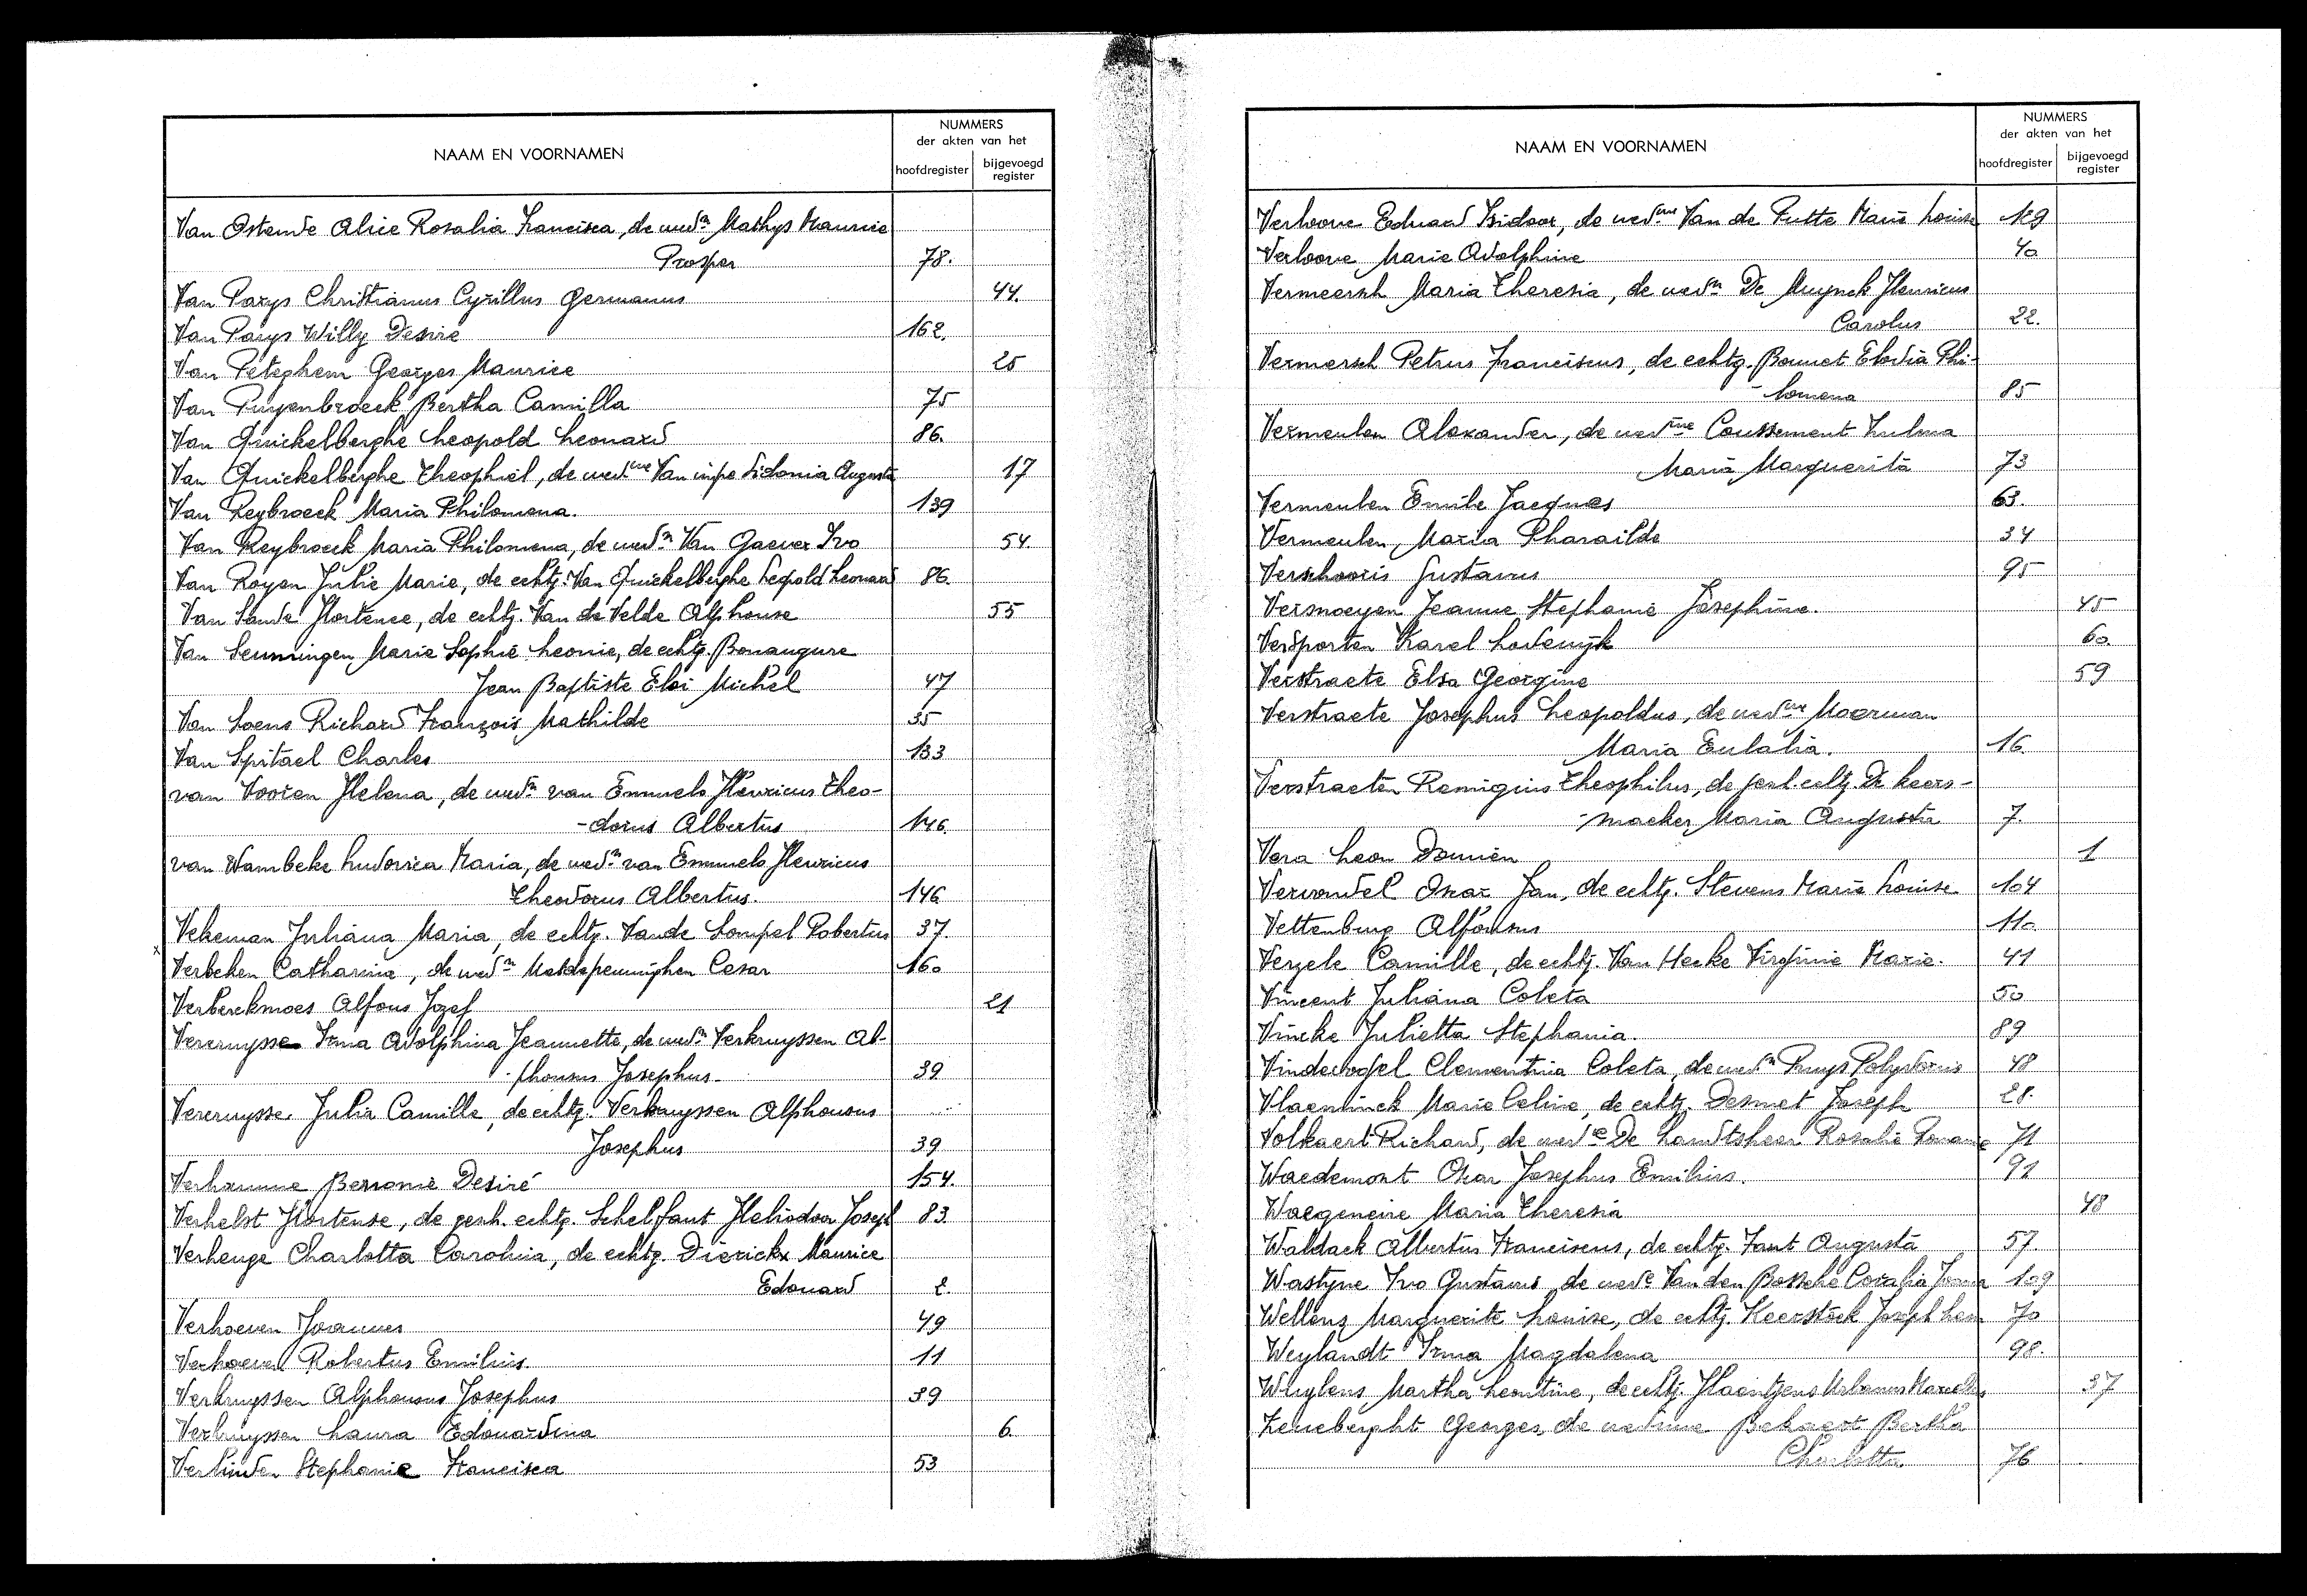 NAAM EN VOORNAMEN
NUMMERS
der akten van het
hoofdregister
bijgevoegd
register
Van Ostende Alice Rosalia Francisca, de wedn Mathys Maurice
Prosper 78.
Van Parys Christianus Cyrillus Germanus 44.
Van Parys Willy Desire 162.
Van Peteghem Georges Maurice 25
Van Puyenbroeck Bertha Camilla 75
Van Quickelberghe Leopold Leonard 86.
Van Quickelberghe Theophiel, de wedwe Van impe Sidonia Augusta 17
Van Reybroeck Maria Philomena. 139
Van Reybroeck Maria Philomena, de wedn Van Gaever Ivo 54.
Van Royen Julie Marie, de echtg. Van Quickelberghe Leopold Leonard 86.
Van Sande Hortence, de echtg. Van de Velde Alphonse 55
Van Seuningen Marie Sophie Leonie, de echtg. Bonaugure
Jean Baptiste Eloi Michel 47
Van Soens Richard François Mathilde 35
Van Spitael Charles 133
van Vooren Helena, de wedn van Emmelo Henricus Theo-
-dorus Albertus 146.
van Wambeke Ludovica Maria, de wedn van Emmelo Henricus
Theodorus Albertus. 146
Vekeman Juliana Maria, de echtg. Vande Sompel Robertus 37.
x Verbeken Catharina, de wedn Matdepenninghen Cesar 160
Verberckmoes Alfons Jozef 21
Vercruysse Irma Adolphina Jeannette, de wedn Verkruyssen Al-
-phonsus Josephus 39
Vercruysse Julia Camille, de echtg. Verkruyssen Alphonsus
Josephus 39
Verhamme Desiré 154.
Verhelst Hortense, de gesch. echtg. Schelfaut Heliodoor Joseph 83.
Verhenge Charlotta Carolina, de echtg. Dierickx Maurice
Edouard 2.
Verhoeven Joannes 49
Verhoeven Robertus Emilius 11
Verkruyssen Alphonsus Josephus 39
Verkruyssen Laura Edouardina 6.
Verlinden Stephanie Francisca 53
NAAM EN VOORNAMEN
NUMMERS
der akten van het
hoofdregister
bijgevoegd
register
Verloove Eduard Isidoor, de wedwe Van de Putte Marie Louise 129
Verloove Marie Adolphine 40
Vermeersch Maria Theresia, de wedn De Muynck Henricus
Carolus 22.
Vermersch Petrus Franciscus, de echtg. Bonnet Elodia Phi-
-lomena 85
Vermeulen Alexander, de wedwe Coussement Zulma
Maria Marguerita 73
Vermeulen Emile Jacques 63.
Vermeulen Maria Pharailde 34
Verschooris Gustavus 95
Versmoeyen Jeanne Stephanie Josephine. 45
Versporten Karel Lodewijk 60.
Verstraete Elsa Georgine 59
Verstraete Josephus Leopoldus, de wedwe Moerman
Maria Eulalia. 16
Verstraeten Remigius Theophilus, de gesch. echtg. De Keers-
-maeker Maria Augusta 7.
Vera Leon Damien 1
Vervondel Oscar Jan, de echtg. Stevens Marie Louise 104
Vettenburg Alfonsus 110
Verzele Camille, de echtg. Van Hecke Virginie Marie. 41
Vincent Juliana Coleta 50
Vincke Julietta Stephania. 89
Vindevogel Clementina Coleta, de wedn Pruys Polydorus 48
Vlaeminck Marie Celine, de echtg. Desmet Joseph 28.
Volkaert Richard, de wede De Landtsheer Rosalie 71
Waedemont Oscar Josephus Emilius. 91
Waegeneire Maria Theresia 48
Waldack Albertus Franciscus, de echtg. Fant Augusta 57.
Wastyne Ivo Gustavus, de wede Van den Bossche Coralia 109
Wellens Marguerite Louise, de echtg. Keerstock Joseph 70
Weylandt Irma Magdalena 98.
Wuylens Martha Leontine, de echtg. Haentjens Urbanus 37
Zeneberght Georges, de weduwe Bekaert Bertha
Charlotta. 76